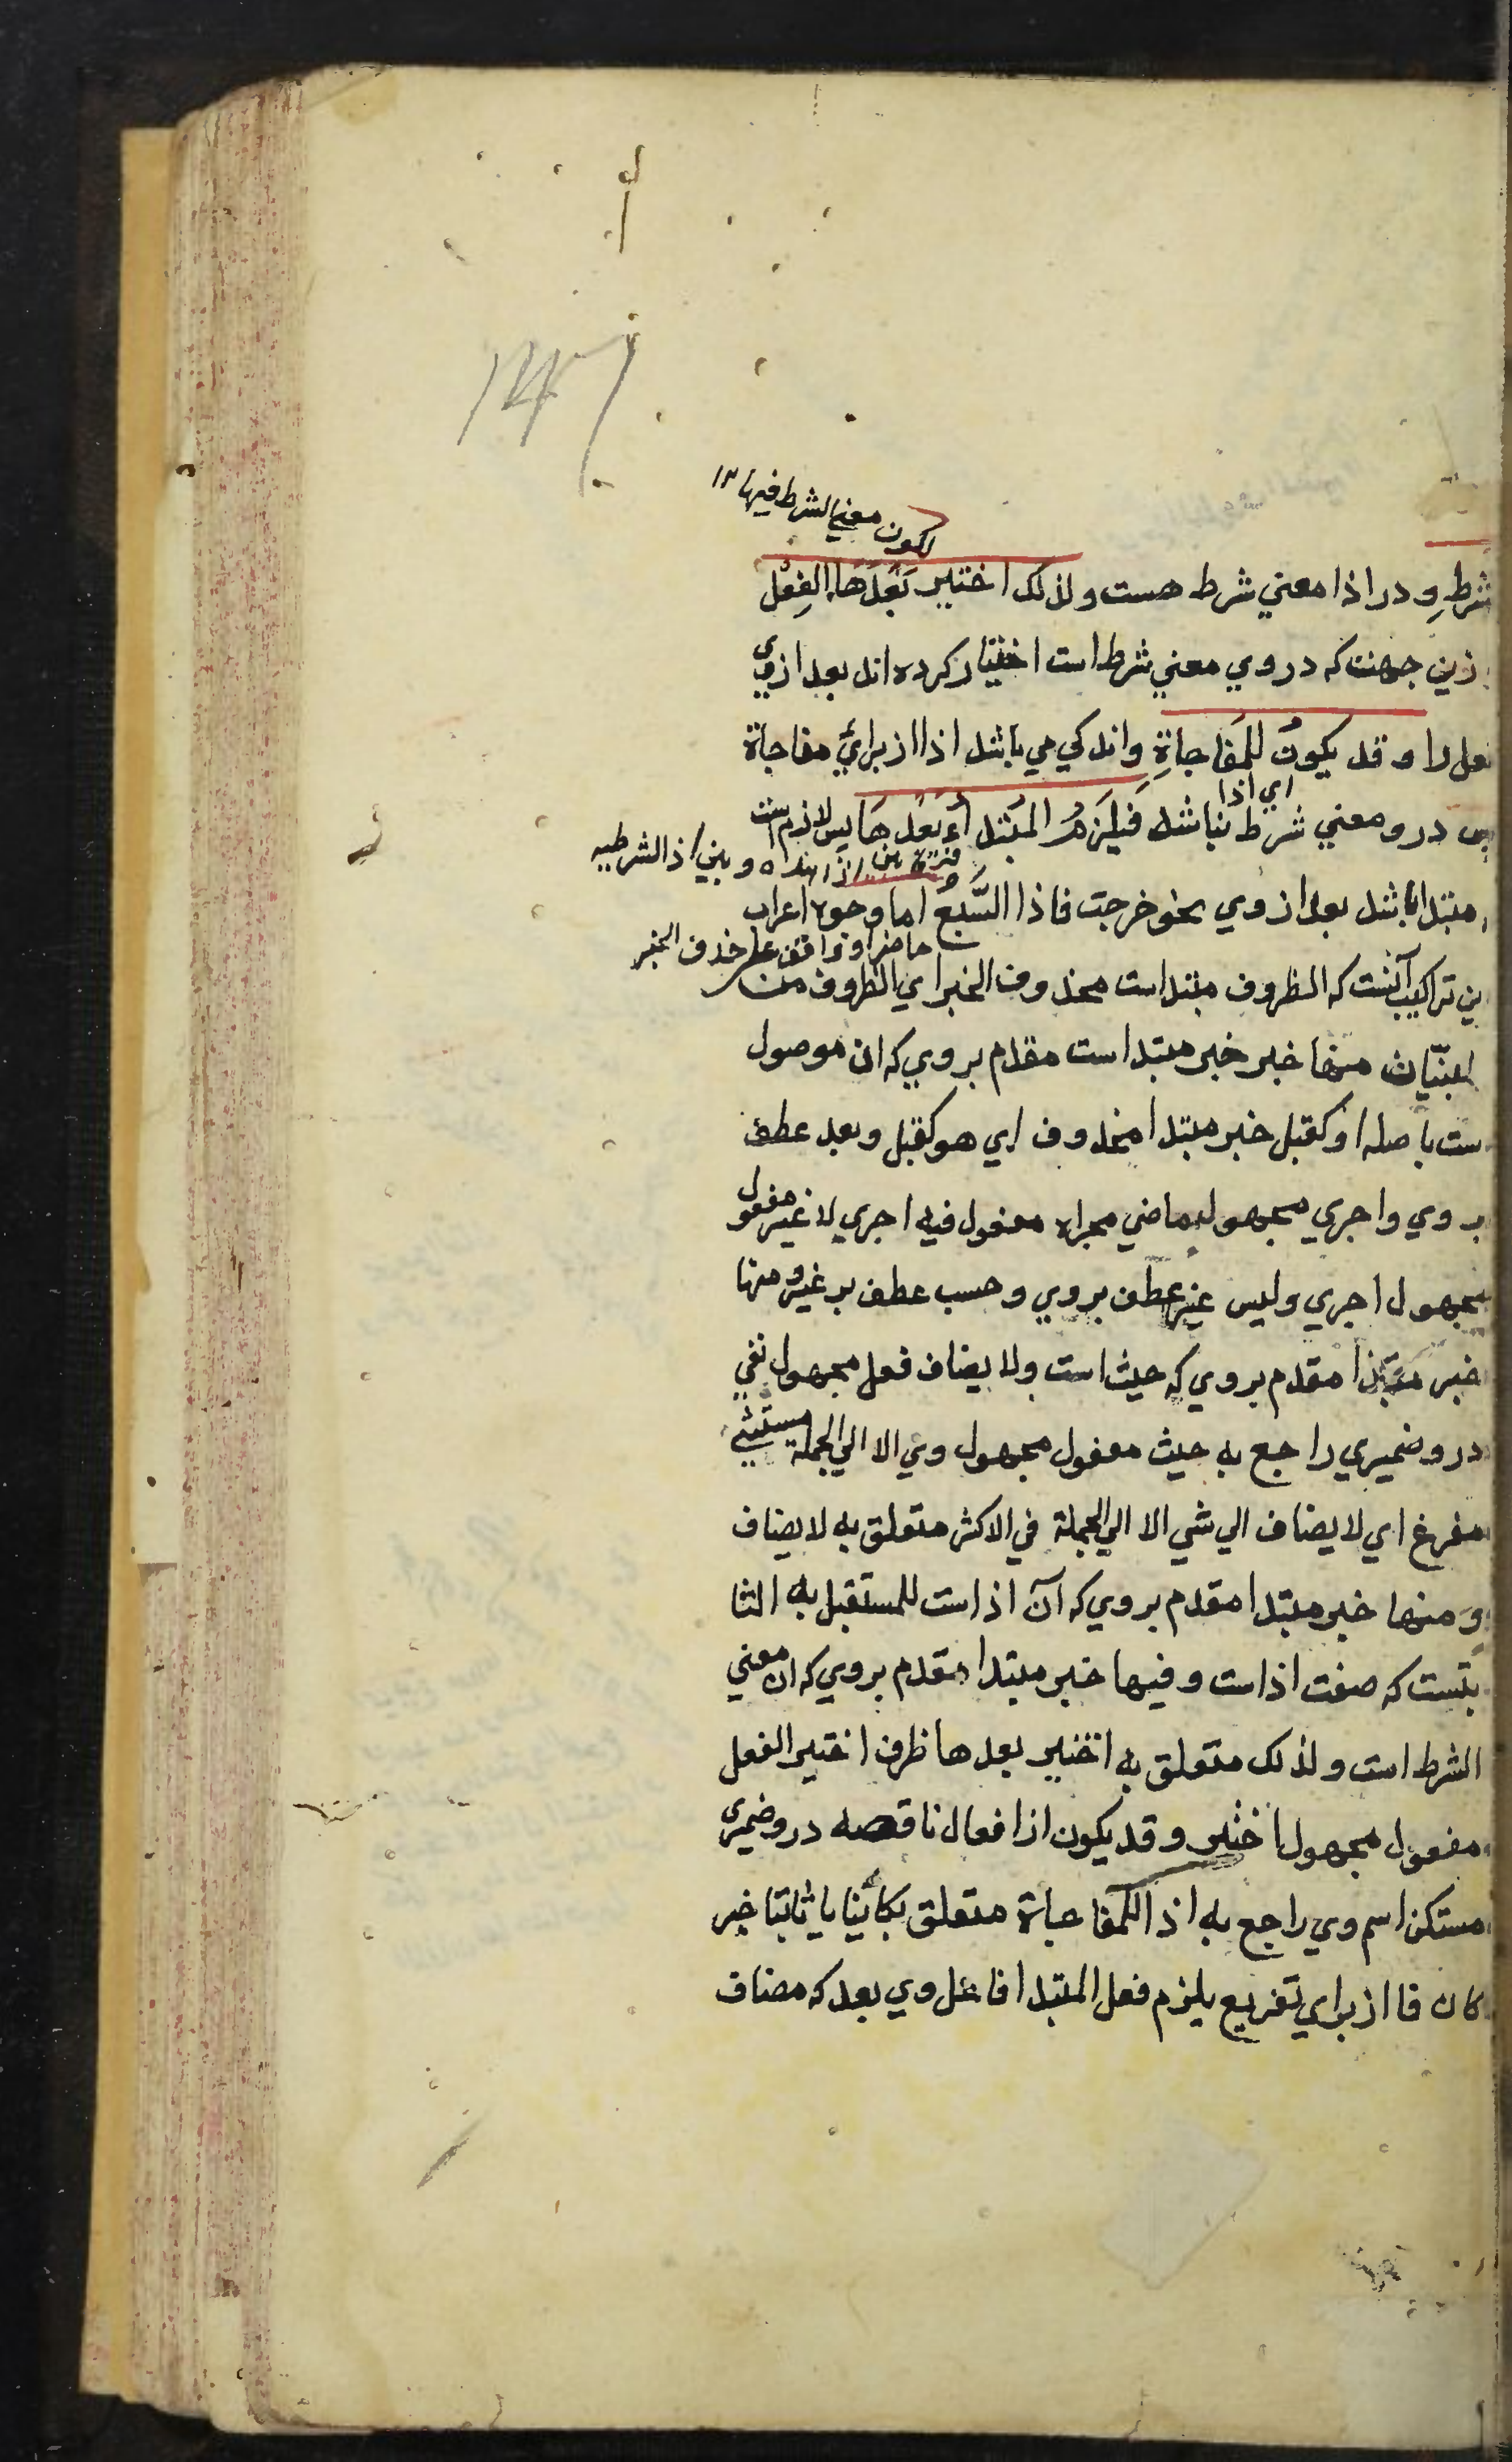 لكون معني الشرط فيها ۱۲
شرط و در اذا معني شرط هست ولذلك اختير بَعْدَهَا الفِعْل
زين جهت كه در وي معني شرط است اختيار كرده اند بعد از وي
فعل را و قد يكونُ للمفَاجاةِ واندكي مي باشد اذا از براي مفاجاة
اي اذا
پس درو معني شرط نباشد فَيَلزَمُ المُبْتَدأءُ بَعْدَهَا پس لازم است
بين اذا هذه وبين اذ الشرطيه
مبتدا باشد بعد از وي نحو خرجت فاذا السَّبُعُ اما وجوه اعراب
حاضر او واقف علي حذف الخبر
ين تراكيب آنست كه الظروف مبتداست محذوف الخبر اي الظروف من
المبنيّات منها خبر خبر مبتداست مقدم بروي كه ان موصول
ست با صله او كقبل خبر مبتدا محذوف اي هو كقبل وبعد عطف
بروي واجري مجهول ماضي مجراه مفعول فيه اجري لا غير مفعول
مجهول اجري وليس غير عطف بروي وحسب عطف بر غير و منها
خبر مبتدا مقدم بروي كه حيث است ولا يضاف فعل مجهول نفي
درو ضميري راجع به حيث مفعول مجهول وي الا الي الجملة مستثني
مفرغ اي لا يضاف الي شي الا الي الجملة في الاكثر متعلق به لا يضاف
و منها خبر مبتدا مقدم بروي كه آن اذا ست للمستقبل به الثا
بتست كه صفت اذا ست وفيها خبر مبتدا مقدم بروي كه ان معني
الشرط است ولذلك متعلق به اختير بعدها ظرف اختير الفعل
مفعول مجهول اختير وقد يكون از افعال ناقصه درو ضميري
مستكن اسم وي راجع به اذا للمفاجاة متعلق بكائنا يا ثابتا خبر
كان فا از براي تفريع يلزم فعل المبتدا فاعل وي بعد كه مضاف